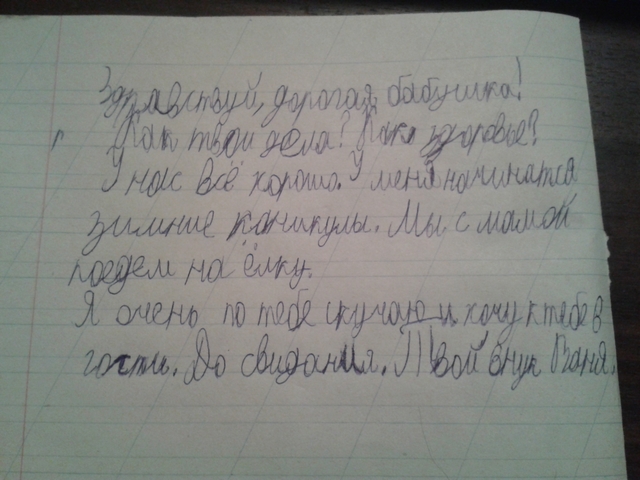 Здравствуй, дорогая бабушка!
Как твои дела? Как здоровье?
У нас всё хорошо. У меня начинатся
зимние каникулы. Мы с мамой
поедем на ёлку.
Я очень по тебе скучаю и хочу к тебе в
гости. До свидания. Твой внук Ваня.